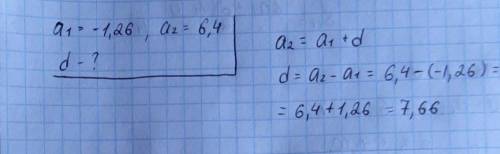 a₁ = -1,26 , a₂ = 6,4
d - ?
a₂ = a₁ + d
d = a₂ - a₁ = 6,4 - (-1,26) =
= 6,4 + 1,26 = 7,66